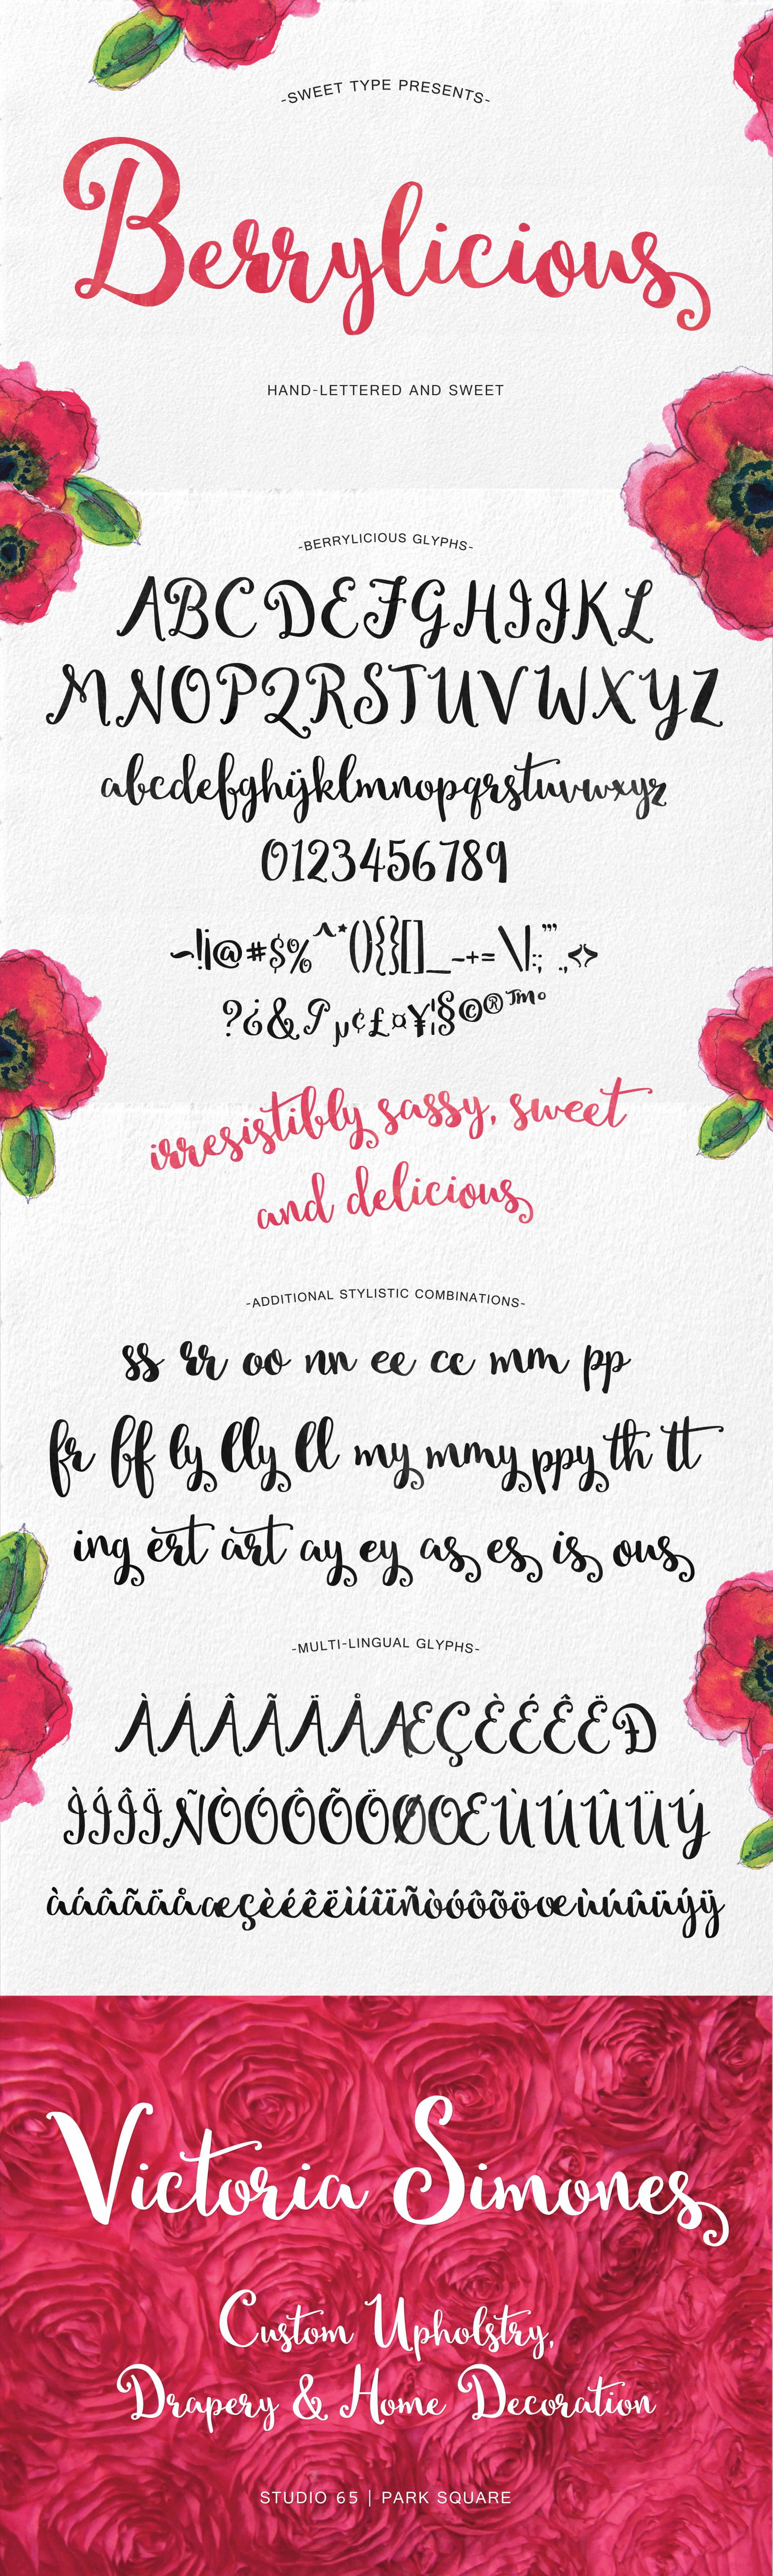 -SWEET TYPE PRESENTS-
Berrylicious
HAND-LETTERED AND SWEET
-BERRYLICIOUS GLYPHS-
ABCDEFGHIJKL
MNOPQRSTUVWXYZ
abcdefghijklmnopqrstuvwxyz
0123456789
~!¡@#$%^*(){}[]_-+=\|:;""'.,<>
?¿&¶µ¢£¤¥¦§©®™°
irresistibly sassy, sweet
and delicious
-ADDITIONAL STYLISTIC COMBINATIONS-
ss rr oo nn ee cc mm pp
fr ff ly lly ll my mmy ppy th tt
ing ert art ay ey as es is ous
-MULTI-LINGUAL GLYPHS-
ÀÁÂÃÄÅÆÇÈÉÊËÐ
ÌÍÎÏÑÒÓÔÕÖØŒÙÚÛÜÝ
àáâãäåæçèéêëìíîïñòóôõöœùúûüýÿ
Victoria Simones
Custom Upholstry,
Drapery & Home Decoration
STUDIO 65 | PARK SQUARE